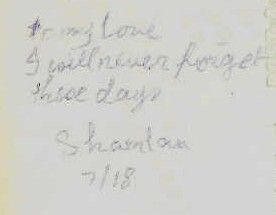 my Love
I will never forget
these days
7/18